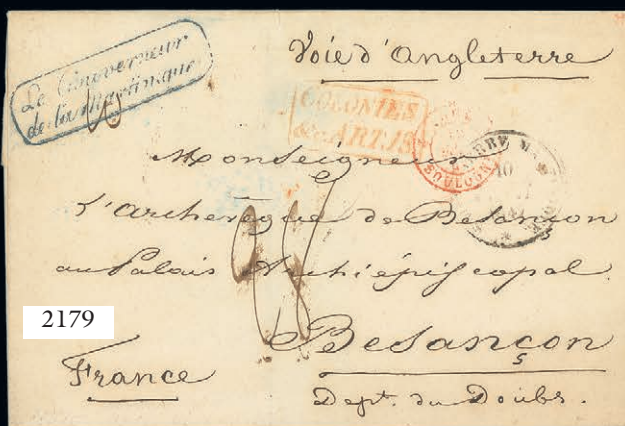 Le Gouverneur
de la Martinique
Voie d'Angleterre
COLONIES
&c. ART. 18
BOULOGNE
10
Monseigneur
L'archevêque de Besançon
au Palais Archiépiscopal
98
2179
Besançon
France
Dept. du Doubs.